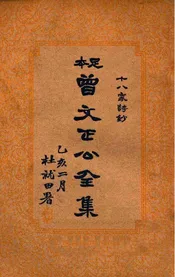 十八家詩鈔
足本
曾文正公全集
乙亥二月
杜就田署